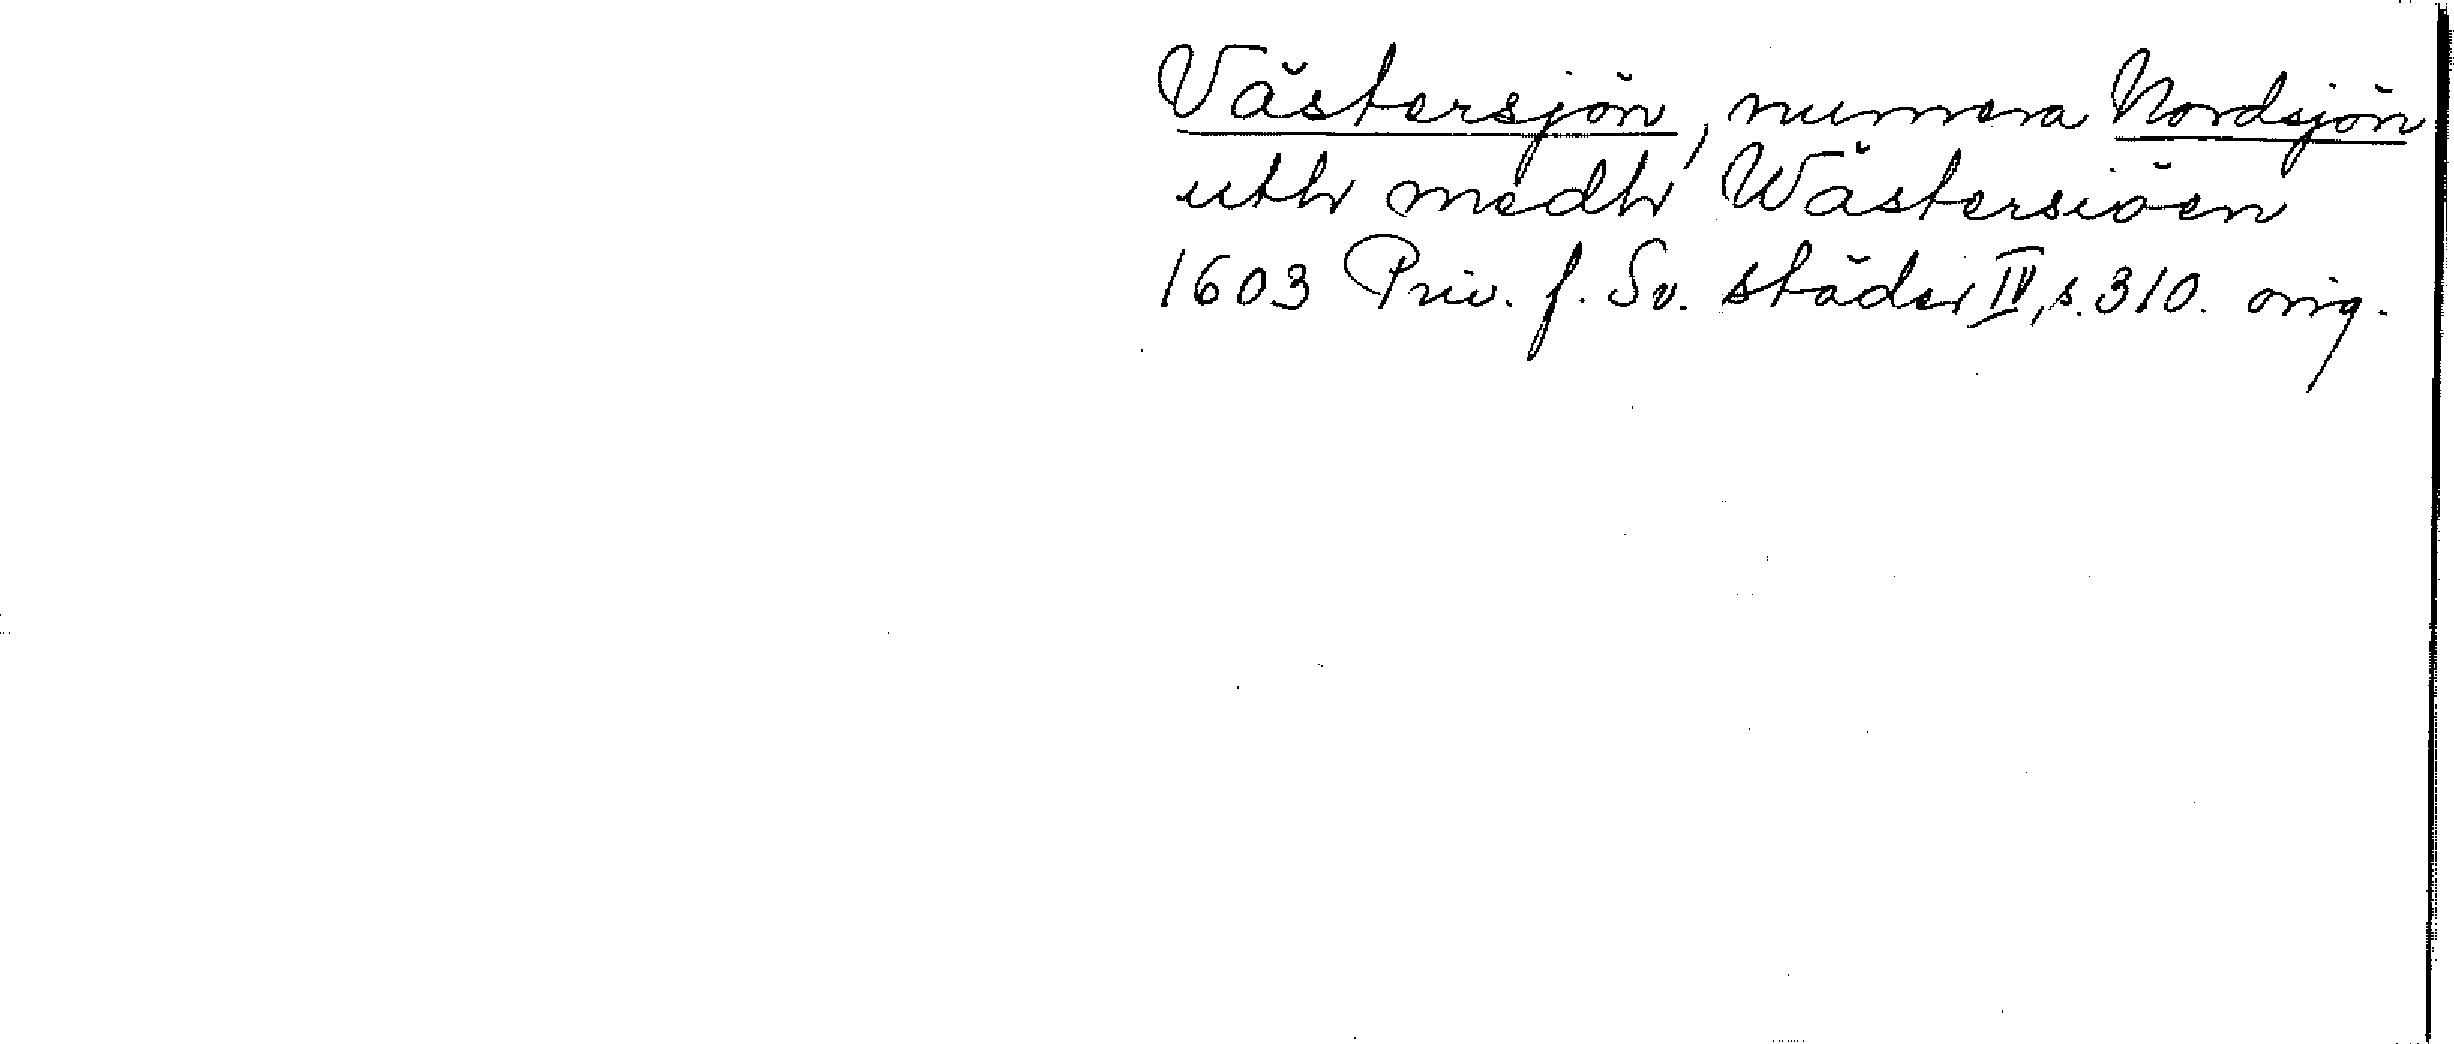 Västersjön, numera Nordsjön
uth medh Wästersiöen
1603 Priv. f. Sv. städer IV, s. 310. orig.